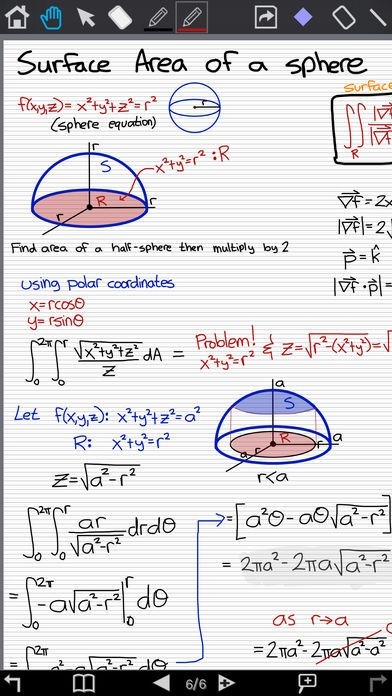 Surface Area of a sphere
f(x,y,z) = x²+y²+z² = r²
(sphere equation)
r
surface
∬
R
|∇f|
|∇f
r
S
x²+y²=r² : R
R
r
r
∇f = 2x
|∇f| = 2
p = k̂
|∇f · p| =
Find area of a half-sphere then multiply by 2
using polar coordinates
x=rcosθ
y=rsinθ
∫₀^2π ∫₀^r √(x²+y²+z²)/z dA =
Problem!
x²+y²=r² & z=√(r²-(x²+y²)) = √
Let f(x,y,z): x²+y²+z²=a²
R: x²+y²=r²
z=√(a²-r²)
a
S
R
r
a
a
r
r<a
∫₀^2π ∫₀^r ar/√(a²-r²) drdθ
= ∫₀^2π -a√(a²-r²) |₀^r dθ
= [a²θ - aθ√(a²-r²)]
= 2πa² - 2πa√(a²-r²)
as r→a
= 2πa² - 2πa√(a²-a²)
6/6